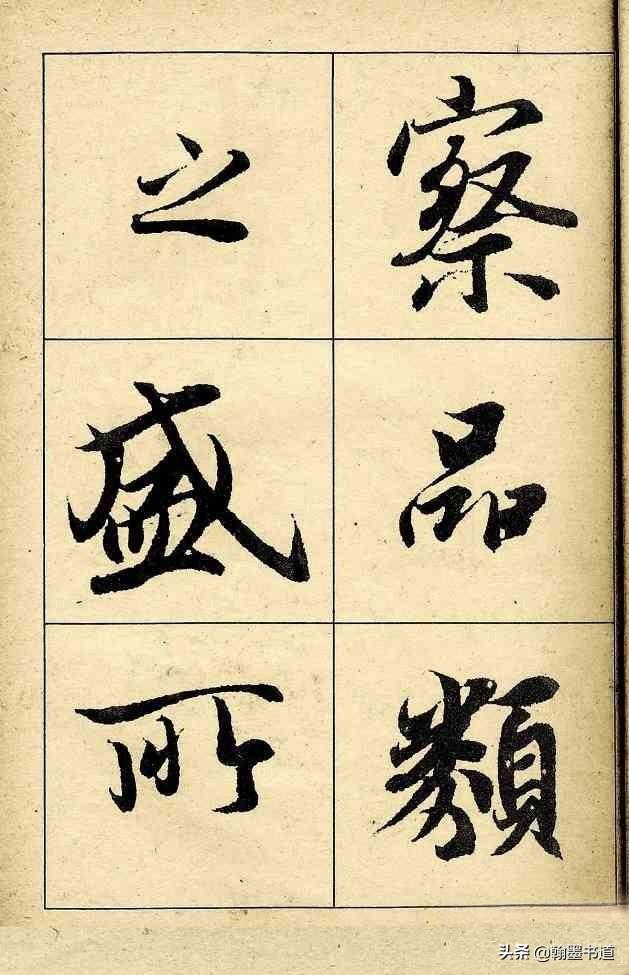 察品類
之盛所
头条 @翰墨书道